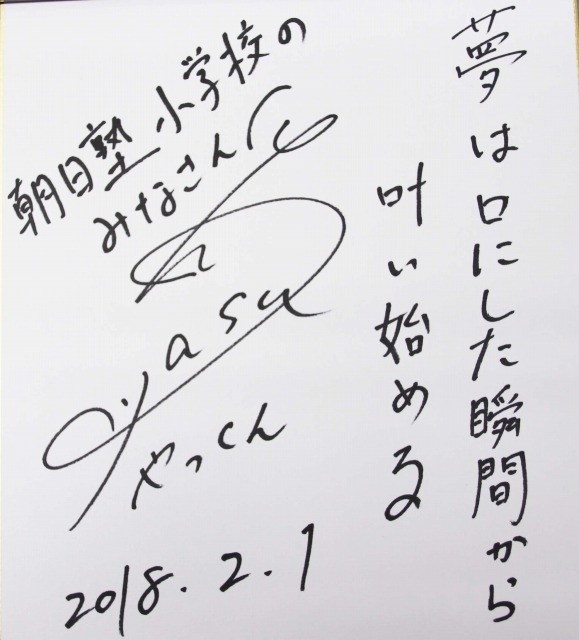 夢は口にした瞬間から
叶い始める
朝日塾小学校の
みなさんへ
yasu
やっくん
2018.2.1